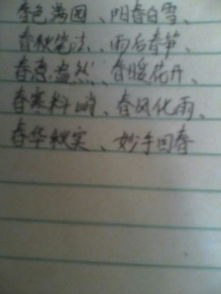 春色满园、阳春白雪、
春秋笔法、雨后春笋、
春意盎然、春暖花开、
春寒料峭、春风化雨、
春华秋实、妙手回春